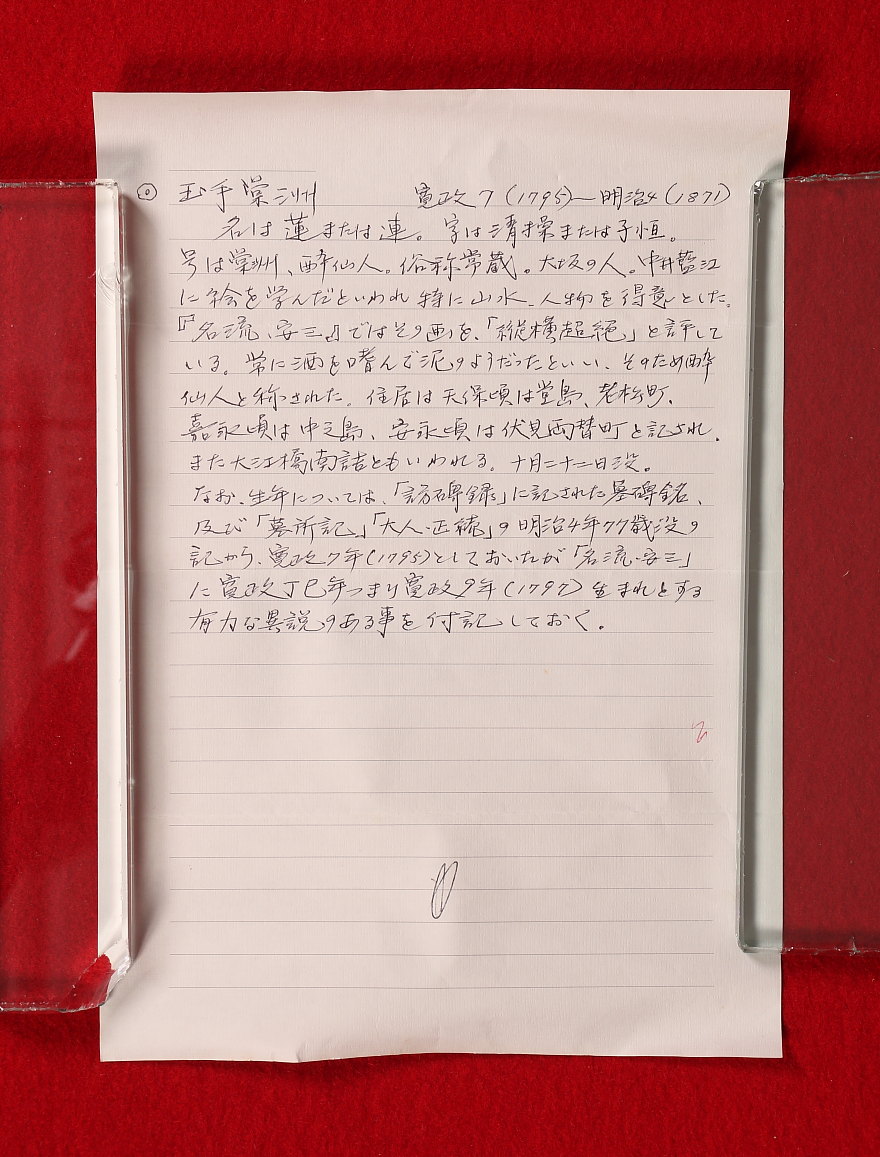 ◎ 玉手棠洲 寛政7(1795)〜明治4(1871)
名は蓮または連。字は清操または子恒。
号は棠洲、酔仙人。俗称常蔵。大坂の人。中井藍江
に絵を学んだといわれ特に山水、人物を得意とした。
『名流・安三』ではその画を、「縦横超絶」と評して
いる。常に酒を嗜んで泥のようだったといい、そのため酔
仙人と称された。住居は天保頃は堂島、老松町、
嘉永頃は中之島、安永頃は伏見両替町と記され、
また大江橋南詰ともいわれる。十月二十二日没。
なお、生年については、「訪碑録」に記された墓碑銘、
及び「墓所記」「大人・正続」の明治4年77歳没の
記から、寛政7年(1795)としておいたが「名流・安三」
に寛政丁巳年つまり寛政9年(1797)生まれとする
有力な異説のある事を付記しておく。